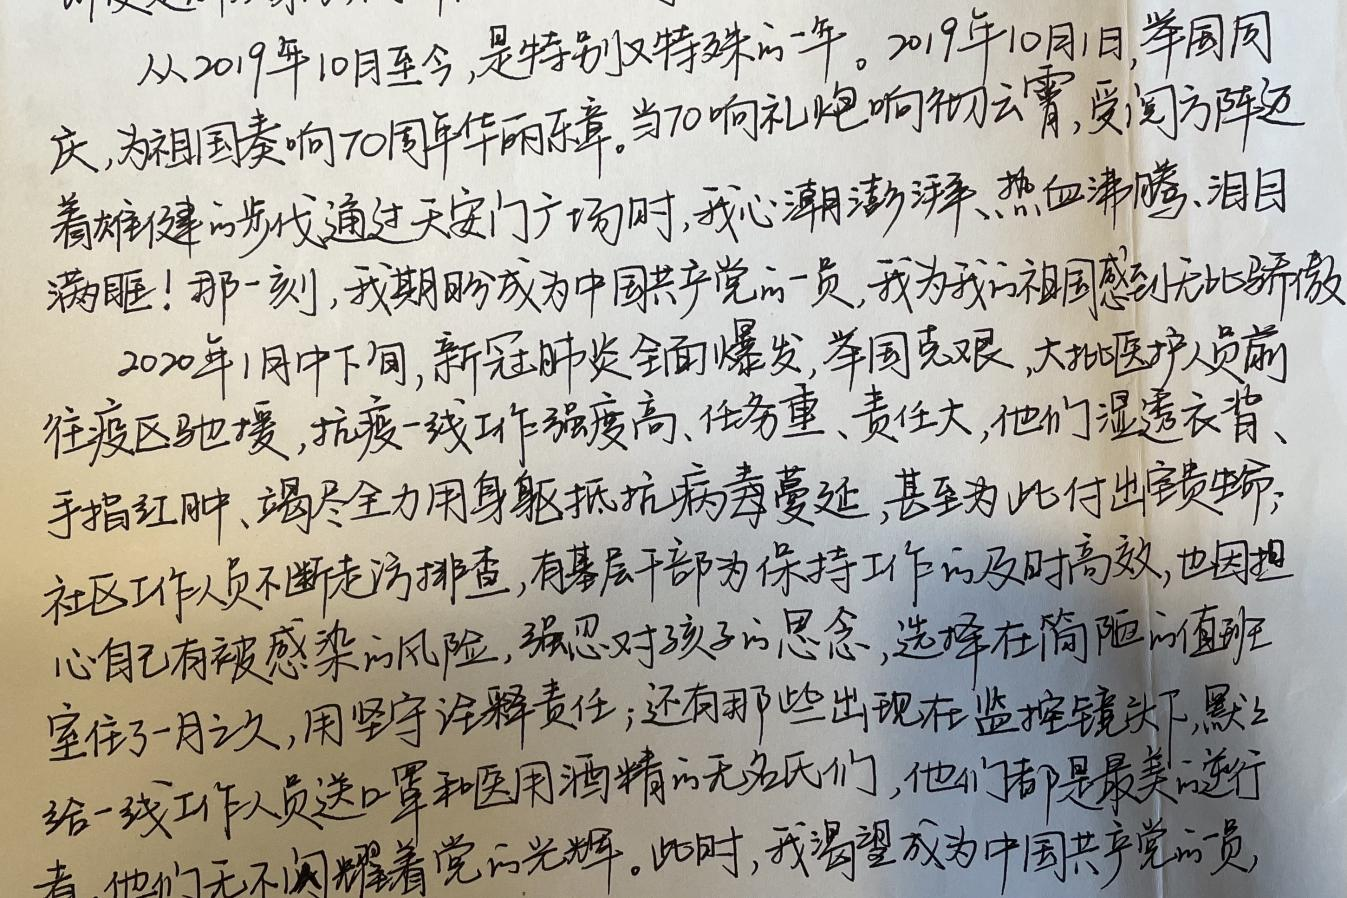 从2019年10月至今，是特别又特殊的一年。2019年10月1日，举国同
庆，为祖国奏响70周年华丽乐章。当70响礼炮响彻云霄，受阅方阵迈
着雄健的步伐通过天安门广场时，我心潮澎湃、热血沸腾、泪目
满眶！那一刻，我期盼成为中国共产党的一员，我为我的祖国感到无比骄傲
2020年1月中下旬，新冠肺炎全面爆发，举国克艰，大批医护人员前
往疫区驰援，抗疫一线工作强度高、任务重、责任大，他们湿透衣背、
手指红肿、竭尽全力用身躯抵抗病毒蔓延，甚至为此付出宝贵生命；
社区工作人员不断走访排查，有基层干部为保持工作的及时高效，也因担
心自己有被感染的风险，强忍对孩子的思念，选择在简陋的值班
室住了一月之久，用坚守诠释责任；还有那些出现在监控镜头下，默默
给一线工作人员送口罩和医用酒精的无名氏们，他们都是最美的逆行
者，他们无不闪耀着党的光辉。此时，我渴望成为中国共产党的一员，